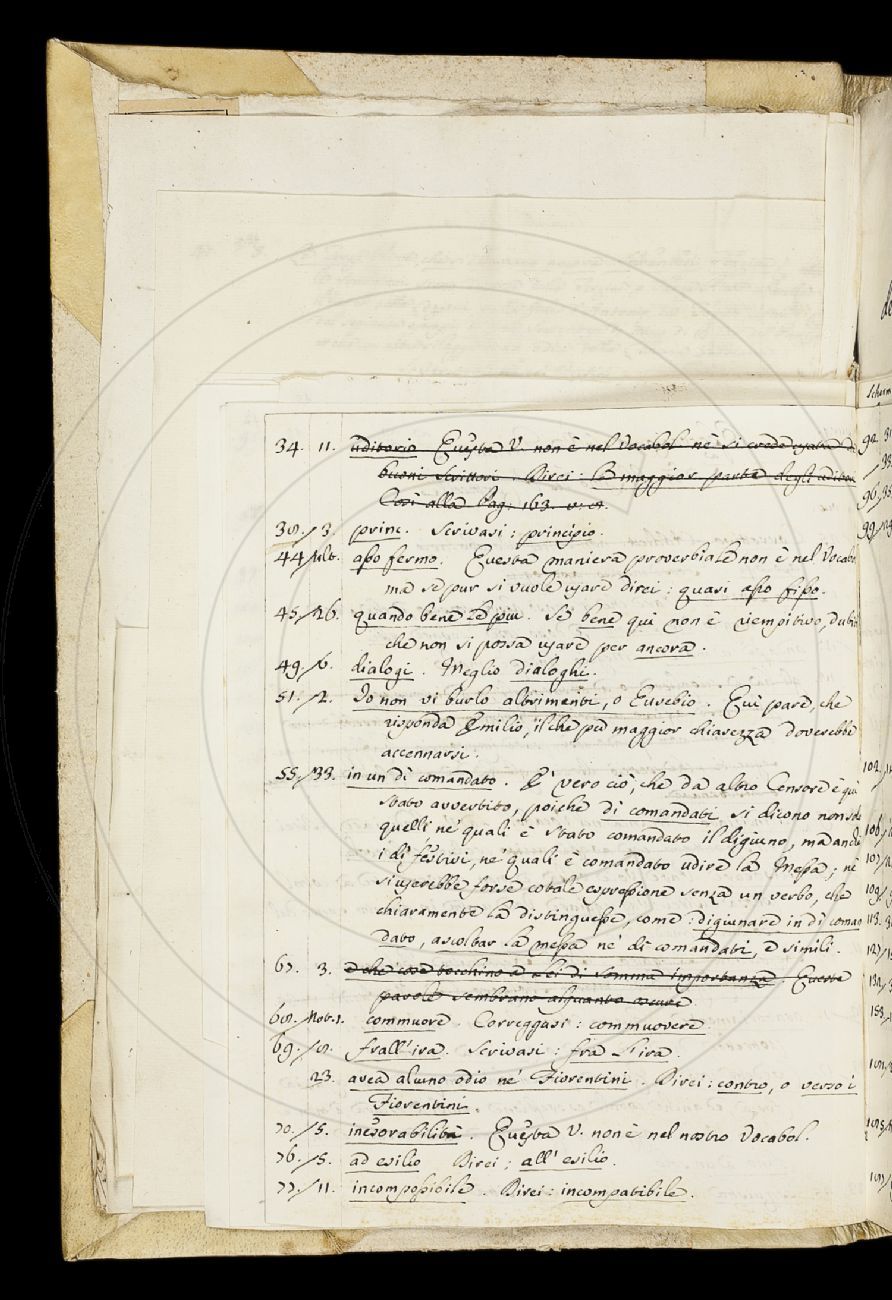 34. 11. uditorio Questa V. non è nel Vocabol. nè si crede usata da
buoni Scrittori. Direi: la maggior parte degli uditori
Così alla Pag. 163. v. 8.
38./3. princ. Scrivasi: principio.
44/ult. asso fermo. Questa maniera proverbiale non è nel Vocabo.
ma se pur si vuole usare direi: quasi asso fisso.
45/26. quando bene le piu. Se bene qui non è riempitivo, dubito
che non si possa usare per ancora.
49/6. dialogi. Meglio dialoghi.
51./2. Io non vi burlo altrimenti, o Eusebio. Qui pare, che
risponda Emilio, il che per maggior chiarezza doverebbe
accennarsi.
55/33. in un dì comandato. E' vero ciò, che da altro Censore è qui
stato avvertito, poichè dì comandati si dicono non solo
quelli ne' quali è stato comandato il digiuno, ma anche
i dì festivi, ne' quali è comandato udire la Messa; nè
si userebbe forse cotale espressione senza un verbo, che
chiaramente la distinguesse, come: digiunare in dì coman
dato, ascoltar la messa ne' dì comandati, e simili.
67. 3. e che cose tocchino a Lei di somma importanza. Queste
parole sembrano alquanto oscure
68./Not.1. commuore. Correggasi: commuovere.
69./8. frall'ira. Scrivasi: fra l'ira.
23. avea aluno odio ne' Fiorentini. Direi: contro, o verso i
Fiorentini.
70./5. inesorabilità. Questa V. non è nel nostro Vocabol.
76./5. ad esilio Direi: all'esilio.
77/11. incompossibile. Direi: incompatibile.